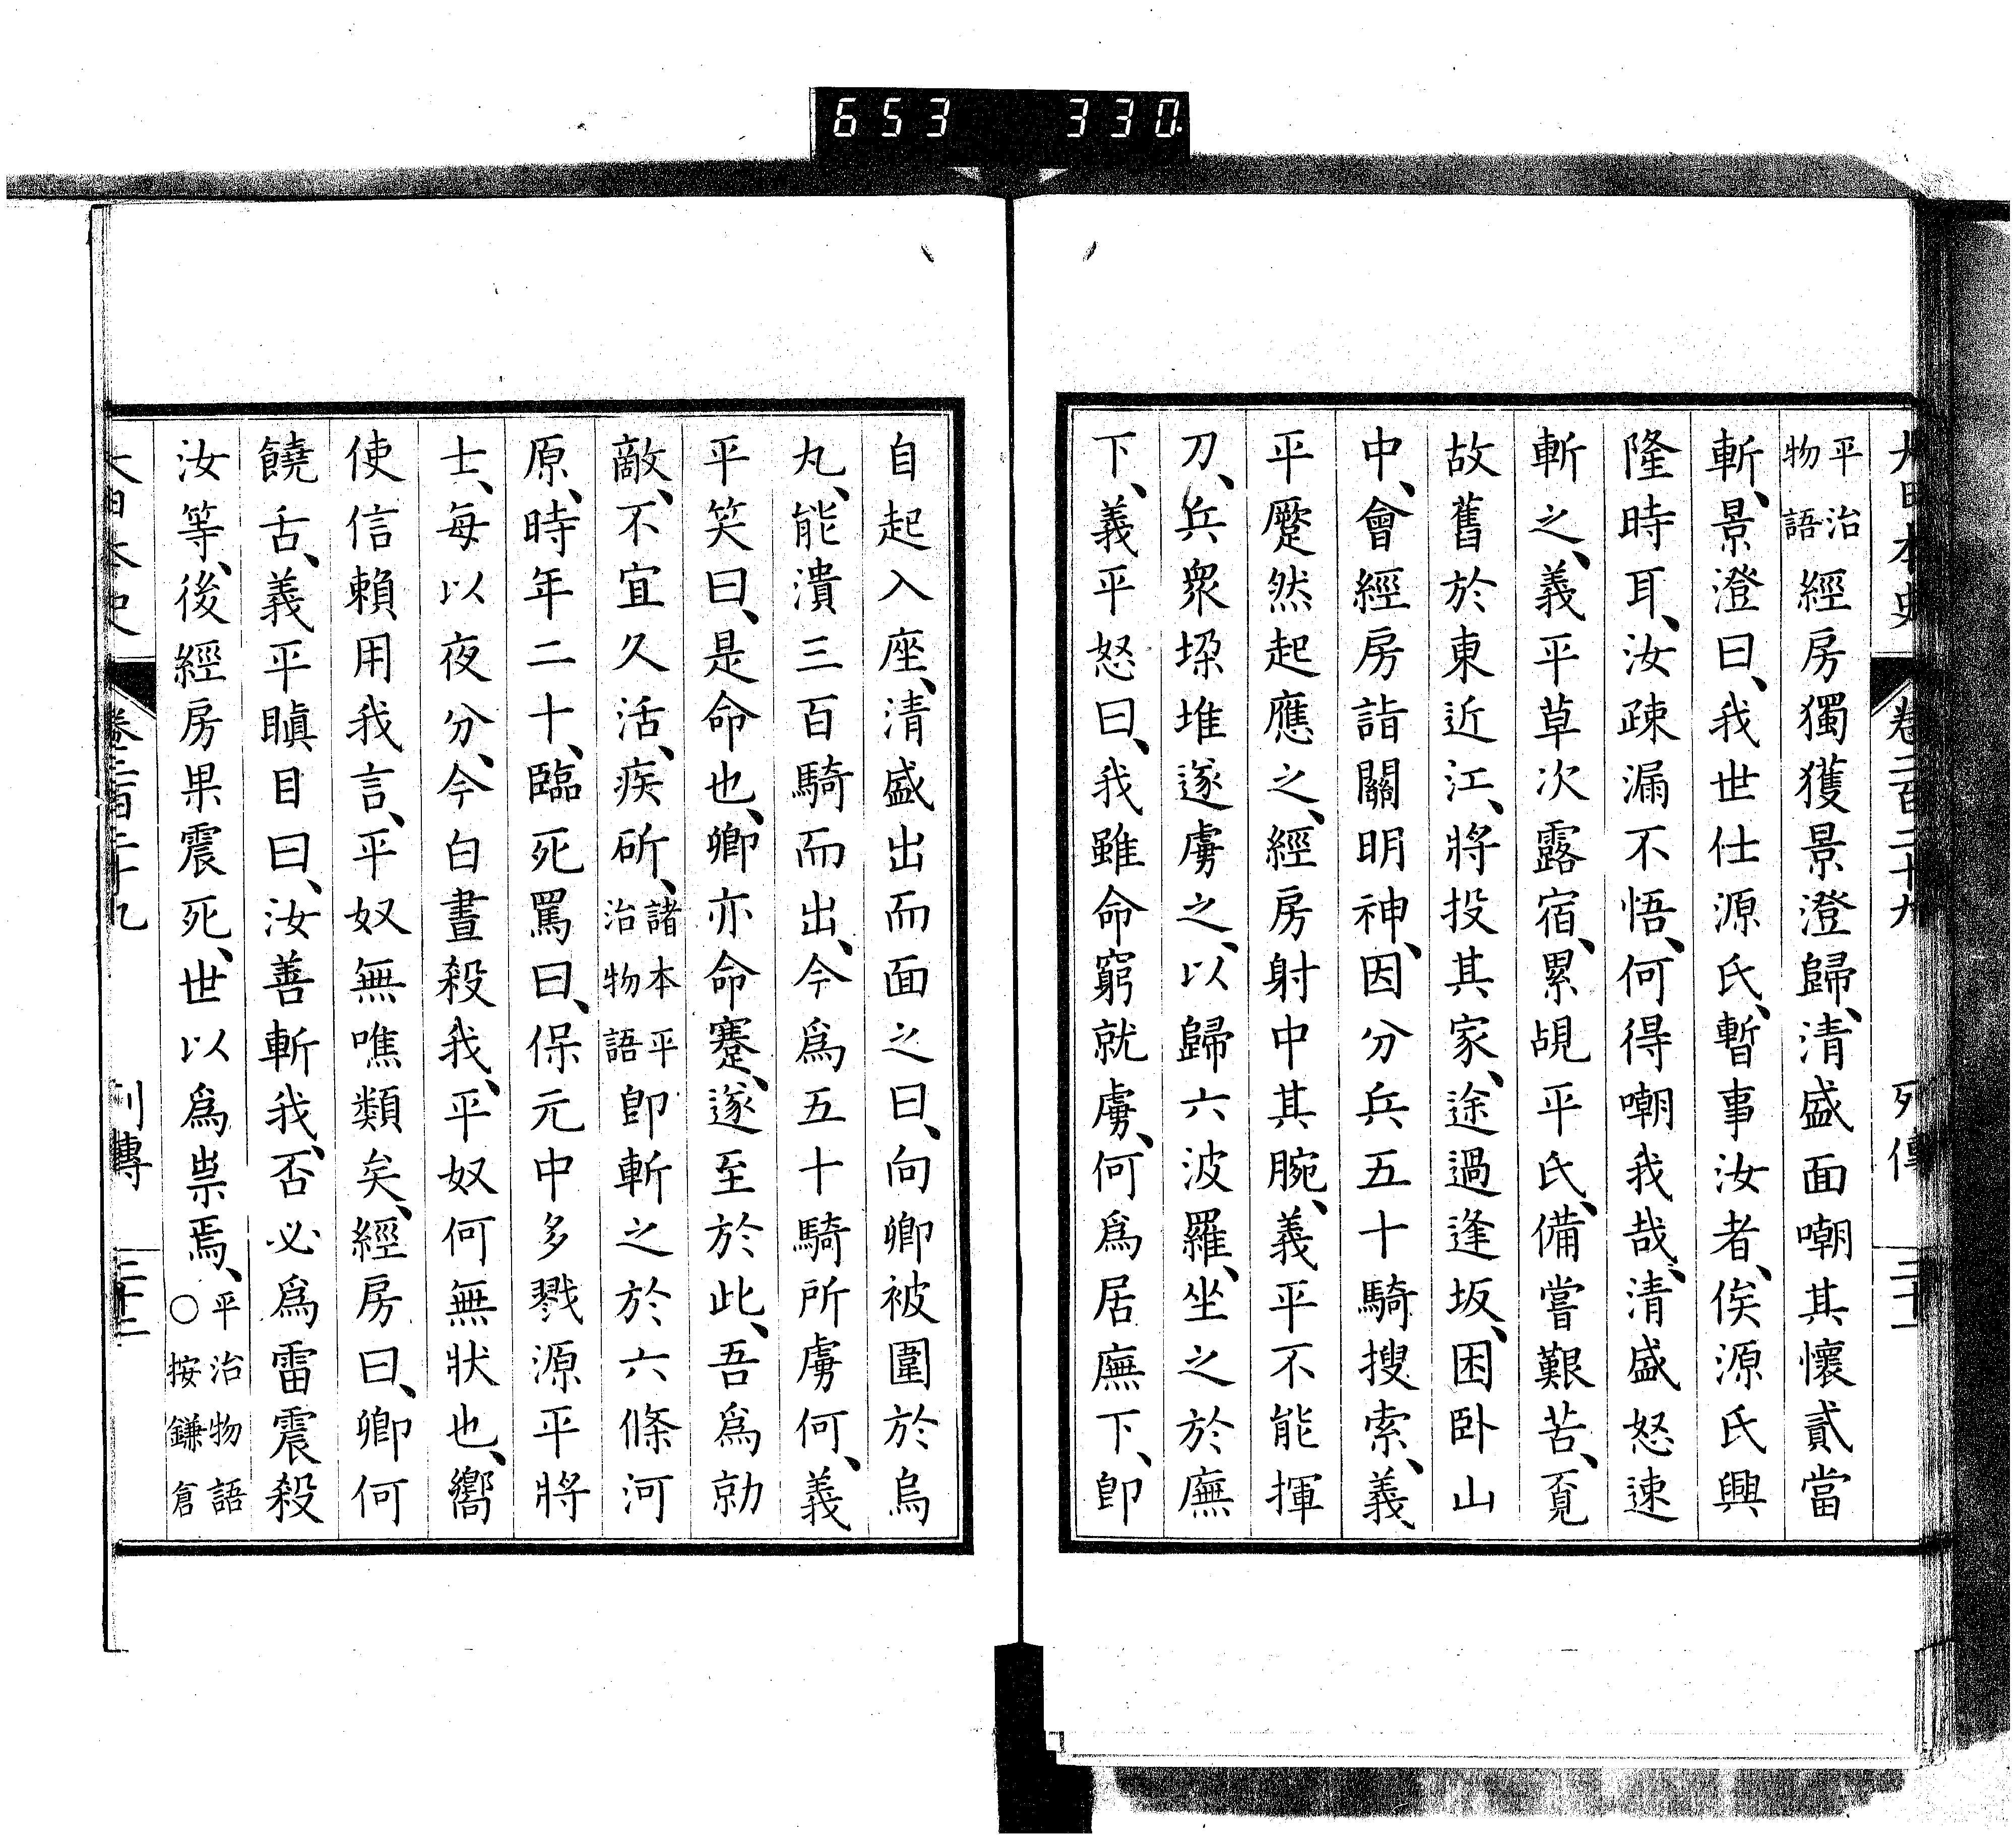 653 330
大日本史 卷二百二十九 列傳 三十一
平治物語經房獨獲景澄歸、清盛面嘲其懷貳當
斬、景澄曰、我世仕源氏、暫事汝者、俟源氏興
隆時耳、汝疎漏不悟、何得嘲我哉、清盛怒速
斬之、義平草次露宿、累覘平氏、備嘗艱苦、覓
故舊於東近江、將投其家、途過逢坂、困卧山
中、會經房詣關明神、因分兵五十騎搜索、義
平蹷然起應之、經房射中其腕、義平不能揮
刀、兵衆垜堆遂虜之、以歸六波羅、坐之於廡
下、義平怒曰、我雖命窮就虜、何爲居廡下、卽
自起入座、清盛出而面之曰、向卿被圍於烏
丸、能潰三百騎而出、今爲五十騎所虜何、義
平笑曰、是命也、卿亦命蹇、遂至於此、吾爲勍
敵、不宜久活、疾斫、諸本平治物語卽斬之於六條河
原、時年二十、臨死罵曰、保元中多戮源平將
士、每以夜分、今白晝殺我、平奴何無狀也、嚮
使信賴用我言、平奴無噍類矣、經房曰、卿何
饒舌、義平瞋目曰、汝善斬我、否必爲雷震殺
汝等、後經房果震死、世以爲祟焉、平治物語○按鎌倉
大日本史 卷二百二十九 列傳 三十二